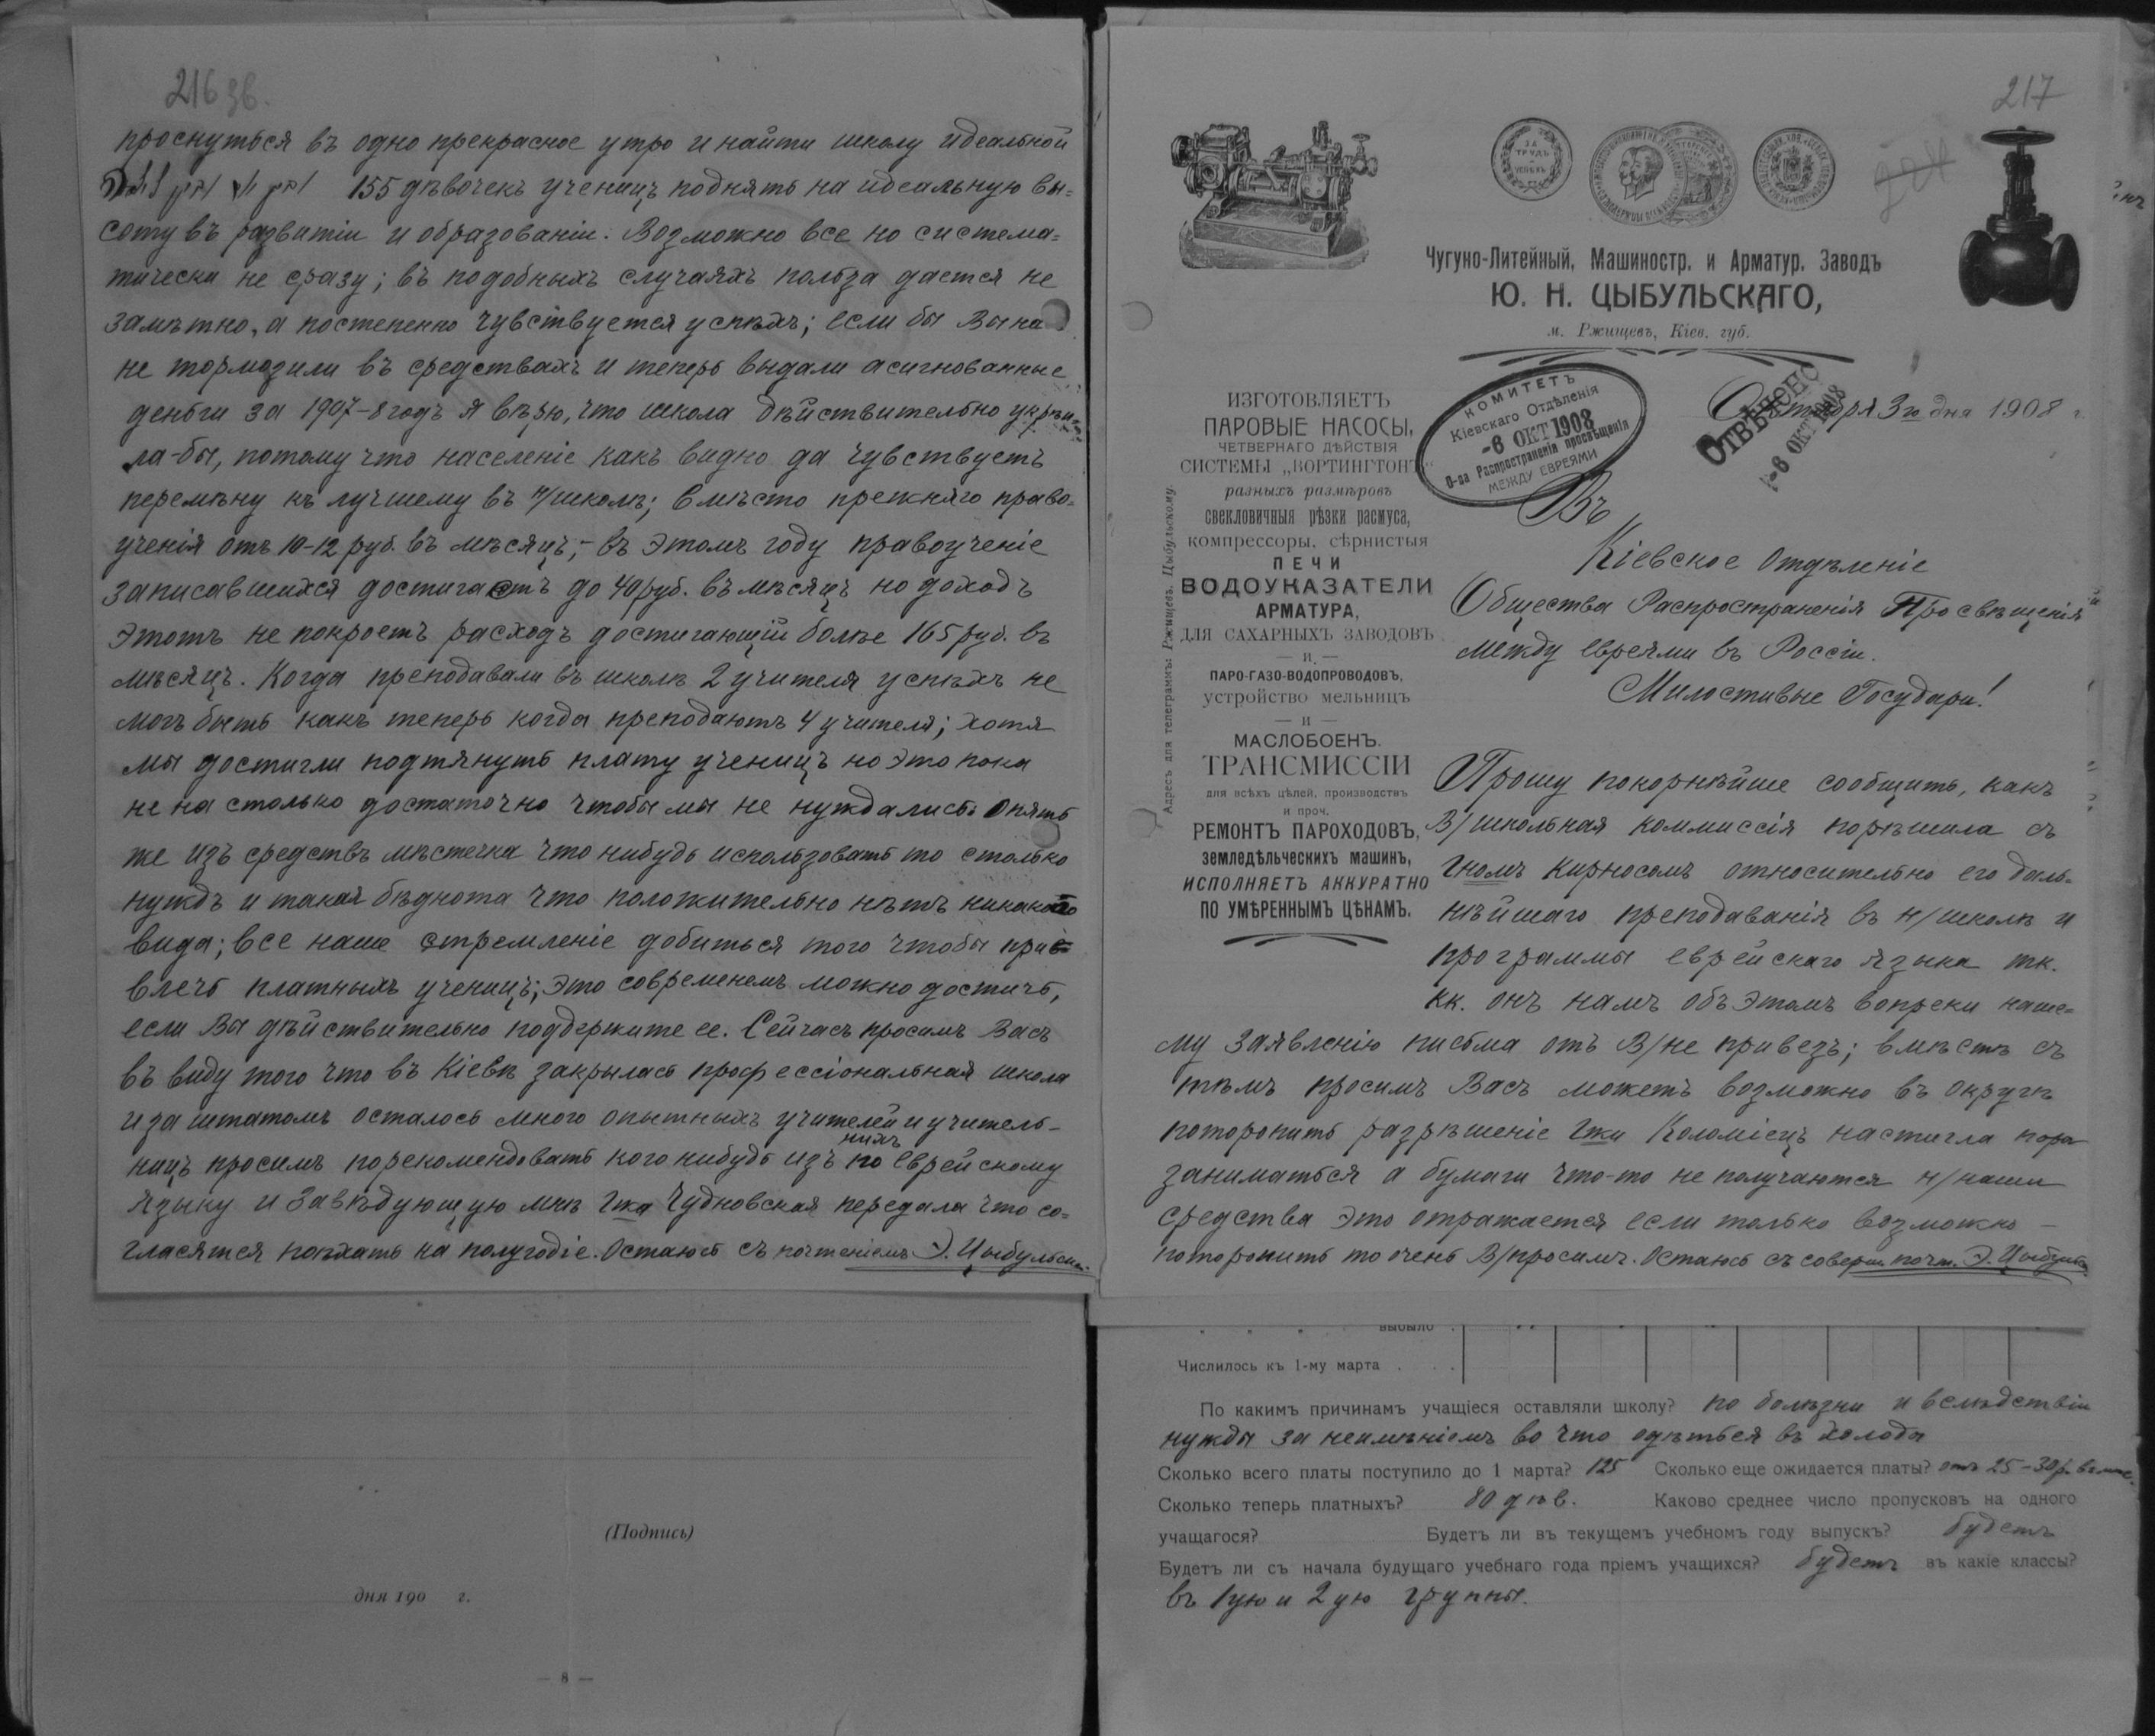 216 зв.
проснуться въ одно прекрасное утро и найти школу идеальной
155 дѣвочекъ ученицъ поднять на идеальную вы=
соту въ развитіи и образованіи. Возможно все но система=
тически не сразу; въ подобныхъ случаяхъ польза дается не
замѣтно, а постепенно чувствуется успѣхъ; если бы Вы на
не тормозили въ средствахъ и теперь выдали асигнованные
деньги за 1907-8 годъ я вѣрю, что школа дѣйствительно укрѣп=
ла-бы, потому что населеніе какъ видно да чувствуетъ
перемѣну къ лучшему въ н/школѣ; вмѣсто прежняго право=
ученія отъ 10-12 руб. въ мѣсяцъ,- въ этомъ году правоученіе
записавшихся достигаетъ до 40 руб. въ мѣсяцъ но доходъ
этотъ не покроетъ расходъ достигающій болѣе 165 руб. въ
мѣсяцъ. Когда преподавали въ школѣ 2 учителя успѣхъ не
могъ быть какъ теперь когда преподаютъ 4 учителя; хотя
мы достигли подтянуть плату ученицъ но это пока
не на столько достаточно чтобы мы не нуждались. Опять
же изъ средствъ мѣстечка что нибудь использовать то столько
нуждъ и такая бѣднота что положительно нѣтъ никакого
вида; все наше стремленіе добиться того чтобы при=
влечь платныхъ ученицъ; это современемъ можно достичь,
если Вы дѣйствительно поддержите ее. Сейчасъ просимъ Васъ
въ виду того что въ Кіевѣ закрылась профессіональная школа
и за штатомъ осталось много опытныхъ учителей и учитель-
ницъ просимъ порекомендовать кого нибудь изъ нихъ по еврейскому
языку и Завѣдующую мнѣ Гжа Чудновская передала что со=
гласятся поѣхать на полугодіе. Остаюсь съ почтеніемъ Э. Цыбульскі
(Подпись)
дня 190 г.
— 8 —
217
ЗА ТРУДЪ
УСПѢХЪ
Чугуно-Литейный, Машиностр. и Арматур. Заводъ
Ю. Н. ЦЫБУЛЬСКАГО,
м. Ржищевъ, Кіев. губ.
Октября 3го дня 1908 г.
КОМИТЕТЪ
Кіевскаго Отдѣленія
-6 ОКТ 1908
О-ва Распространенія просвѣщенія
МЕЖДУ ЕВРЕЯМИ
ОТВѢЧЕНО
-6 ОКТ 1908
Адресъ для телеграммъ: Ржищевъ. Цыбульскому.
ИЗГОТОВЛЯЕТЪ
ПАРОВЫЕ НАСОСЫ,
ЧЕТВЕРНАГО ДѢЙСТВІЯ
СИСТЕМЫ „ВОРТИНГТОНЪ“
разныхъ размѣровъ
СВЕКЛОВИЧНЫЯ РѢЗКИ РАСМУСА,
компрессоры, сѣрнистыя
ПЕЧИ
ВОДОУКАЗАТЕЛИ
АРМАТУРА,
ДЛЯ САХАРНЫХЪ ЗАВОДОВЪ
— и —
ПАРО-ГАЗО-ВОДОПРОВОДОВЪ,
устройство мельницъ
— и —
МАСЛОБОЕНЪ.
ТРАНСМИССІИ
для всѣхъ цѣлей, производствъ
и проч.
РЕМОНТЪ ПАРОХОДОВЪ,
земледѣльческихъ машинъ,
ИСПОЛНЯЕТЪ АККУРАТНО
ПО УМѢРЕННЫМЪ ЦѢНАМЪ.
Въ
Кіевское Отдѣленіе
Общества Распространенія Просвѣщенія
между евреями въ Россіи.
Милостивые Государи!
Прошу покорнѣйше сообщить, какъ
В/школьная коммиссія порѣшила съ
Гномъ Кирносомъ относительно его даль=
нѣйшаго преподаванія въ н/школѣ и
программы еврейскаго языка тк.
кк. онъ намъ объ этомъ вопреки наше=
му заявленію письма отъ В/не привезъ; вмѣстѣ съ
тѣмъ просимъ Васъ можетъ возможно въ округѣ
поторопить разрѣшеніе Гжи Коломіецъ настигла пора
заниматься а бумаги что-то не получаются н/наши
средства это отражается если только возможно —
поторопить то очень В/просимъ. Остаюсь съ соверш. почт. Э. Цыбульс
выбыло
Числилось къ 1-му марта . . .
По какимъ причинамъ учащіеся оставляли школу? по болѣзни и вслѣдствіи
нужды за неимѣніемъ во что одѣться въ холода
Сколько всего платы поступило до 1 марта? 125 Сколько еще ожидается платы? отъ 25-30 р. въ мѣс.
Сколько теперь платныхъ? 80 дѣв. Каково среднее число пропусковъ на одного
учащагося? Будетъ ли въ текущемъ учебномъ году выпускъ? будетъ
Будетъ ли съ начала будущаго учебнаго года пріемъ учащихся? будетъ въ какіе классы?
въ 1ую и 2ую группы.